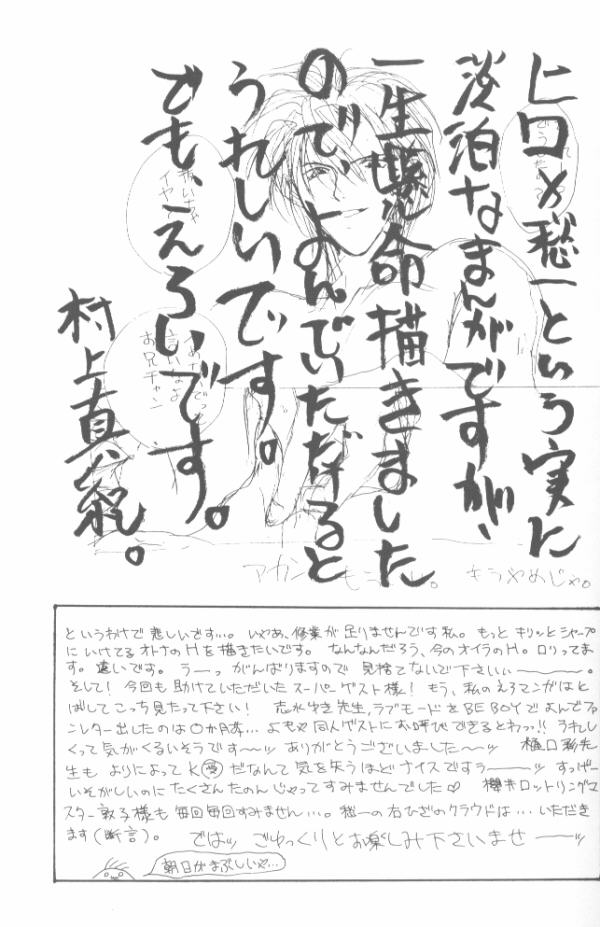 ヒロ×愁一という実に
淡泊なまんがですが、
一生懸命描きました
ので、よんでいただけると
うれしいです。
でも、えろいです。
村上真紀。
お兄チャン
キラやめじゃ。
というわけで悲しいです…。いやあ、修業が足りませんです私。もっとキリッとシャープ
にいけてるオトナのHを描きたいです。なんなんだろう、今のオイラのH。ロリってま
す。遠いです。うーっがんばりますので見捨てないで下さいぃ〜〜〜。
そして!今回も助けていただいたスーパーゲスト様!もう、私のえろマンガはと
ばしてこっち見たって下さい! 志水ゆき先生、ラブモードをBE BOYでよんでファ
ンレター出したのは○か月前…よもや同人ゲストにお呼びできるとわっ!!うれし
くって気がくるいそうです〜〜ッ ありがとうございました〜ッ 樋口 先
生も よりによってK だなんて気を失うほどナイスですうーーッ すっげー
いそがしいのにたくさんたのんじゃってすみませんでした♡ 櫻井ロットリングマ
スター敦子様も毎回毎回すみません…。愁一の右ひざのクラウドは…いただき
ます(断言)。 ではッ ごゆっくりとお楽しみ下さいませ ーーッ
朝日がまぶしいや…